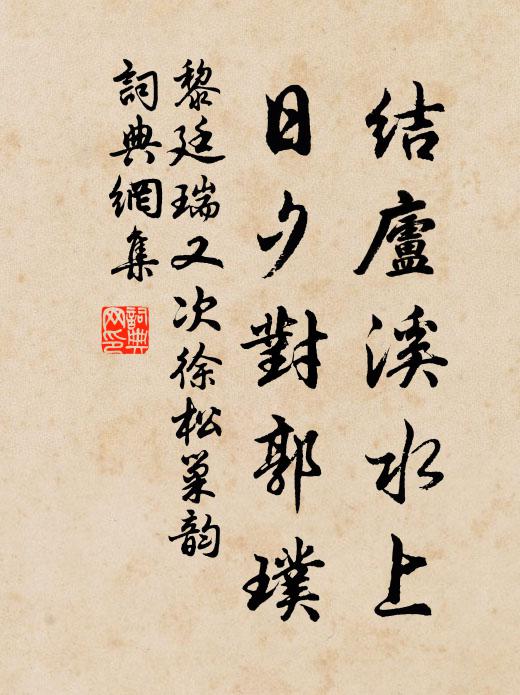 结廬溪水上
日夕對郭璞
黎廷瑞又次徐松巢韵
詞典網集
詞典
网印